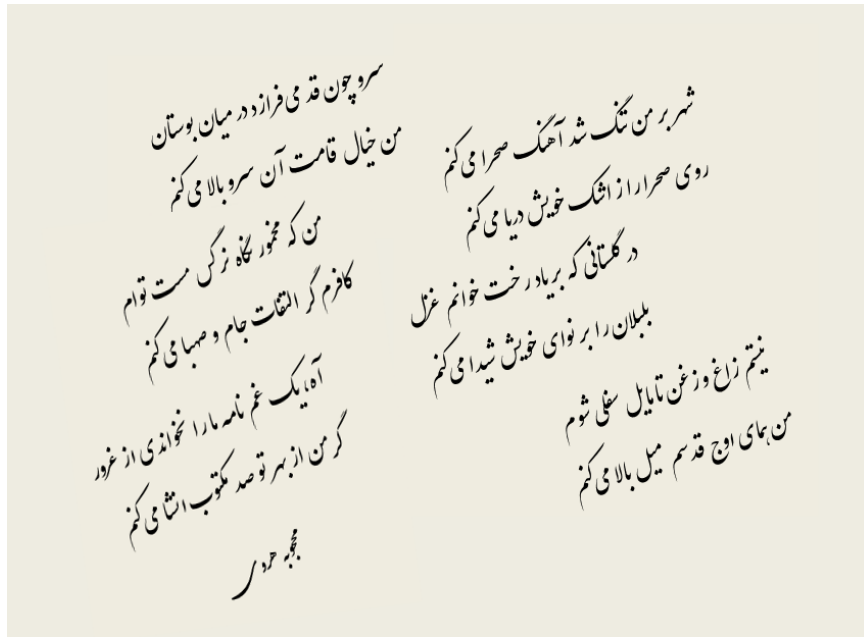 شهر بر من تنگ شد آهنگ صحرا می‌کنم
روی صحرا را از اشک خویش دریا می‌کنم
در گلستانی که بر یاد رخت خوانم غزل
بلبلان را بر نوای خویش شیدا می‌کنم
نیستم زاغ و زغن تا مایل سفلی شوم
من همای اوج قدسم میل بالا می‌کنم
سرو چون قد می‌فرازد در میان بوستان
من خیال قامت آن سرو بالا می‌کنم
من که مخمور نگاه نرگس مست توام
کافرم گر التفات جام و صهبا می‌کنم
آه، یک غم نامه ما را نخواندی از غرور
گر من از بهر تو صد مکتوب انشا می‌کنم
محجوبه هروی